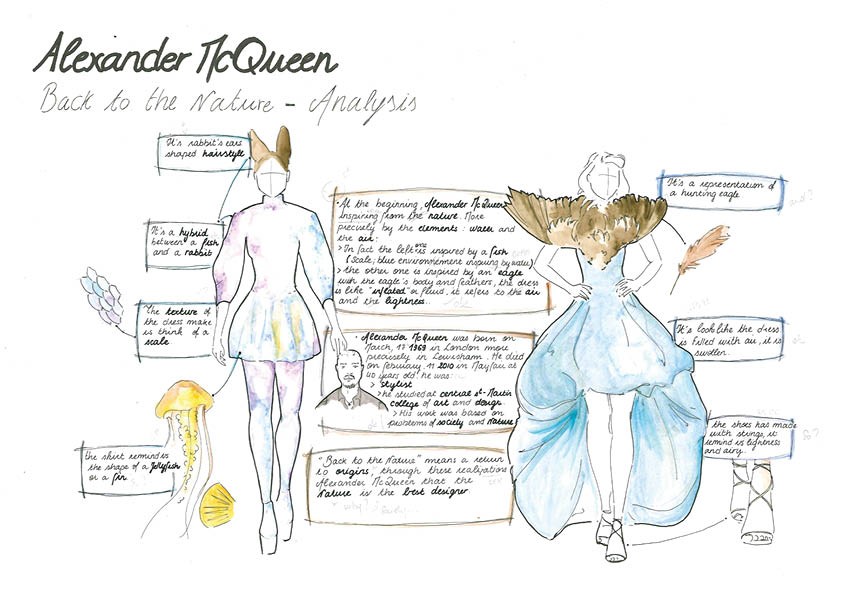 Alexander McQueen
Back to the Nature - Analysis
It's rabbit's ears
shaped hairstyle
It's a hybrid
between a fish
and a rabbit
The texture of
the dress make
is think of a
scale
the skirt remind is
the shape of a Jellyfish
or a fin.
At the beginning, Alexander McQueen
inspiring from the nature. More
precisely by the elements: water and
the air:
> In fact the left one inspired by a fish
(scale, blue environnement inspiring by water)
> the other one is inspired by an eagle
with the eagle's body and feathers, the dress
is like "inflated" or fluid, it refers to the air
and the lightness.
Alexander McQueen was born on
March, 17 1969 in London more
precisely in Lewisham. He died
on february, 11 2010 in Mayfair at
40 years old. he was:
> Stylist
> he studied at central st-Martin
college of art and design
> His work was based on
problems of society and Nature
"Back to the Nature" means a return
to origins, through these realizations
Alexander McQueen that the
Nature is the best designer
why?
It's a representation of
a hunting eagle
and?
It's look like the dress
is filled with air, it is
swollen.
the shoes has made
with strings, it
remind is lightness
and airy.
so?